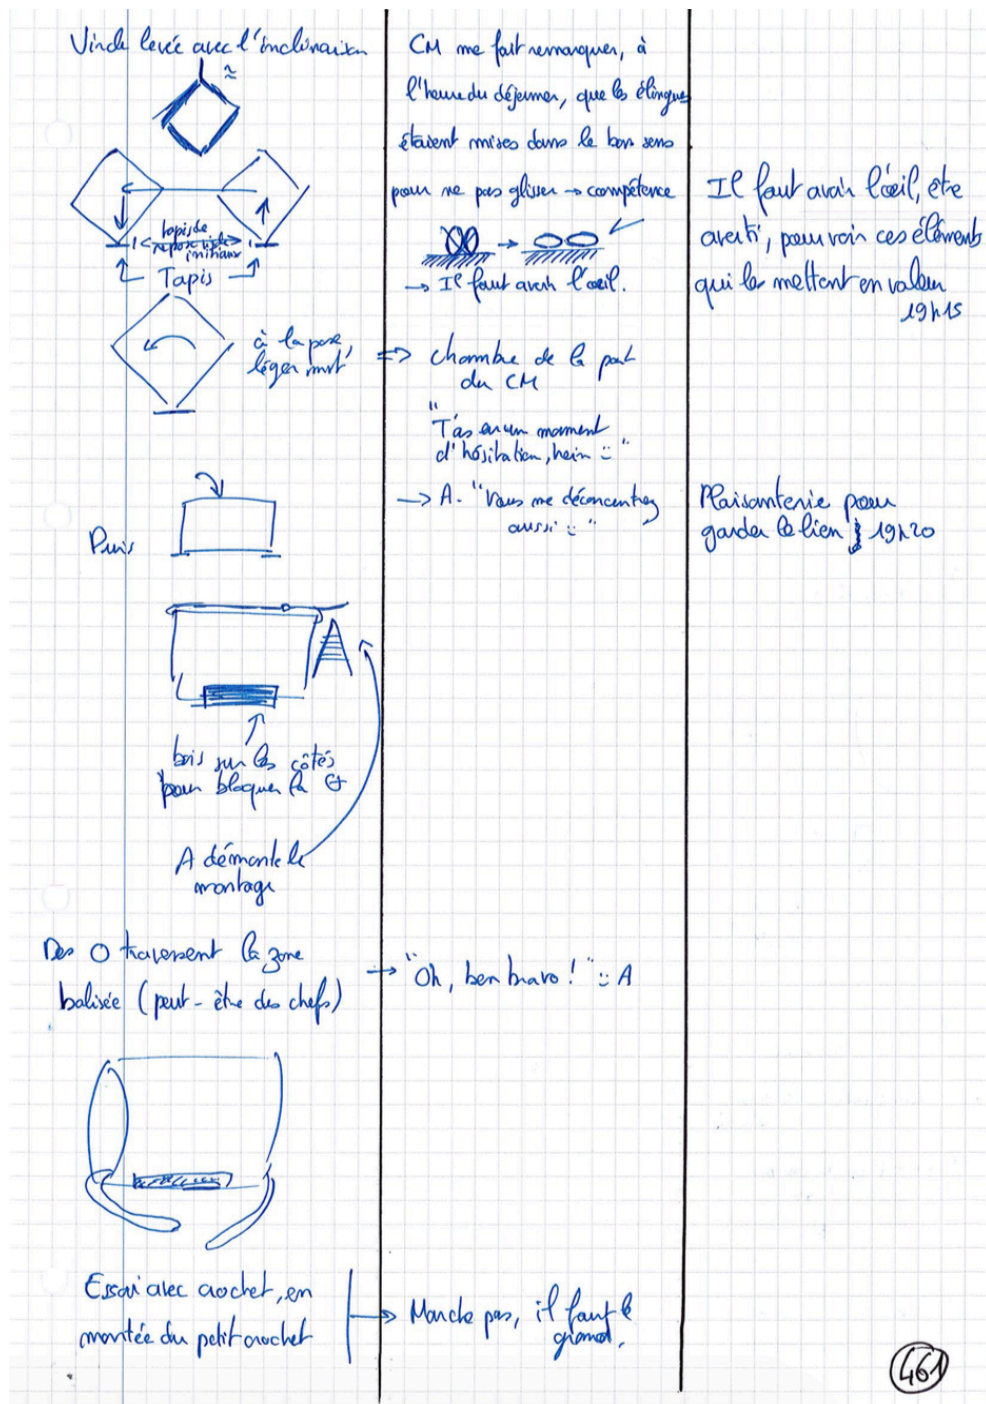 Virole levée avec l'inclinaison
≈
tapis de
repose
initiaux
Tapis
à la pose,
léger mvt
Puis
bois sur les côtés
pour bloquer la
A démonte le
montage
Des O traversent la zone
balisée (peut-être des chefs)
Essai avec crochet, en
montée du petit crochet
CM me fait remarquer, à
l'heure du déjeuner, que les élingues
étaient mises dans le bon sens
pour ne pas glisser → compétence
→ Il faut avoir l'œil.
⇒ chambre de la part
du CM
"T'as eu un moment
d'hésitation, hein :-"
→ A. "Vous me déconcentrez
aussi :-"
→ "Oh, ben bravo !" :- A
→ Marche pas, il faut le
grand.
Il faut avoir l'œil, être
averti, pour voir ces éléments
qui les mettent en valeur
19h15
Plaisanterie pour
garder le lien 19h20
461